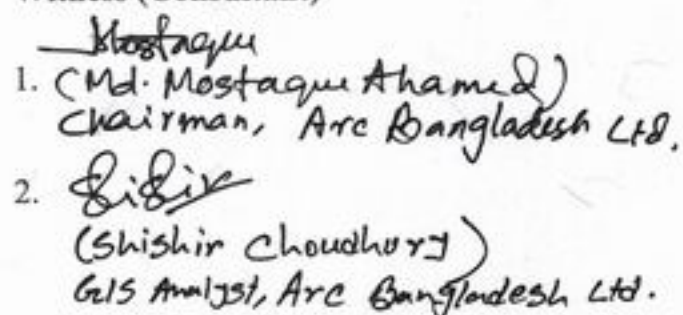 Mostaque
1. (Md. Mostaque Ahamed)
Chairman, Arc Bangladesh Ltd.
2.
(Shishir Choudhury)
GIS Analyst, Arc Bangladesh Ltd.